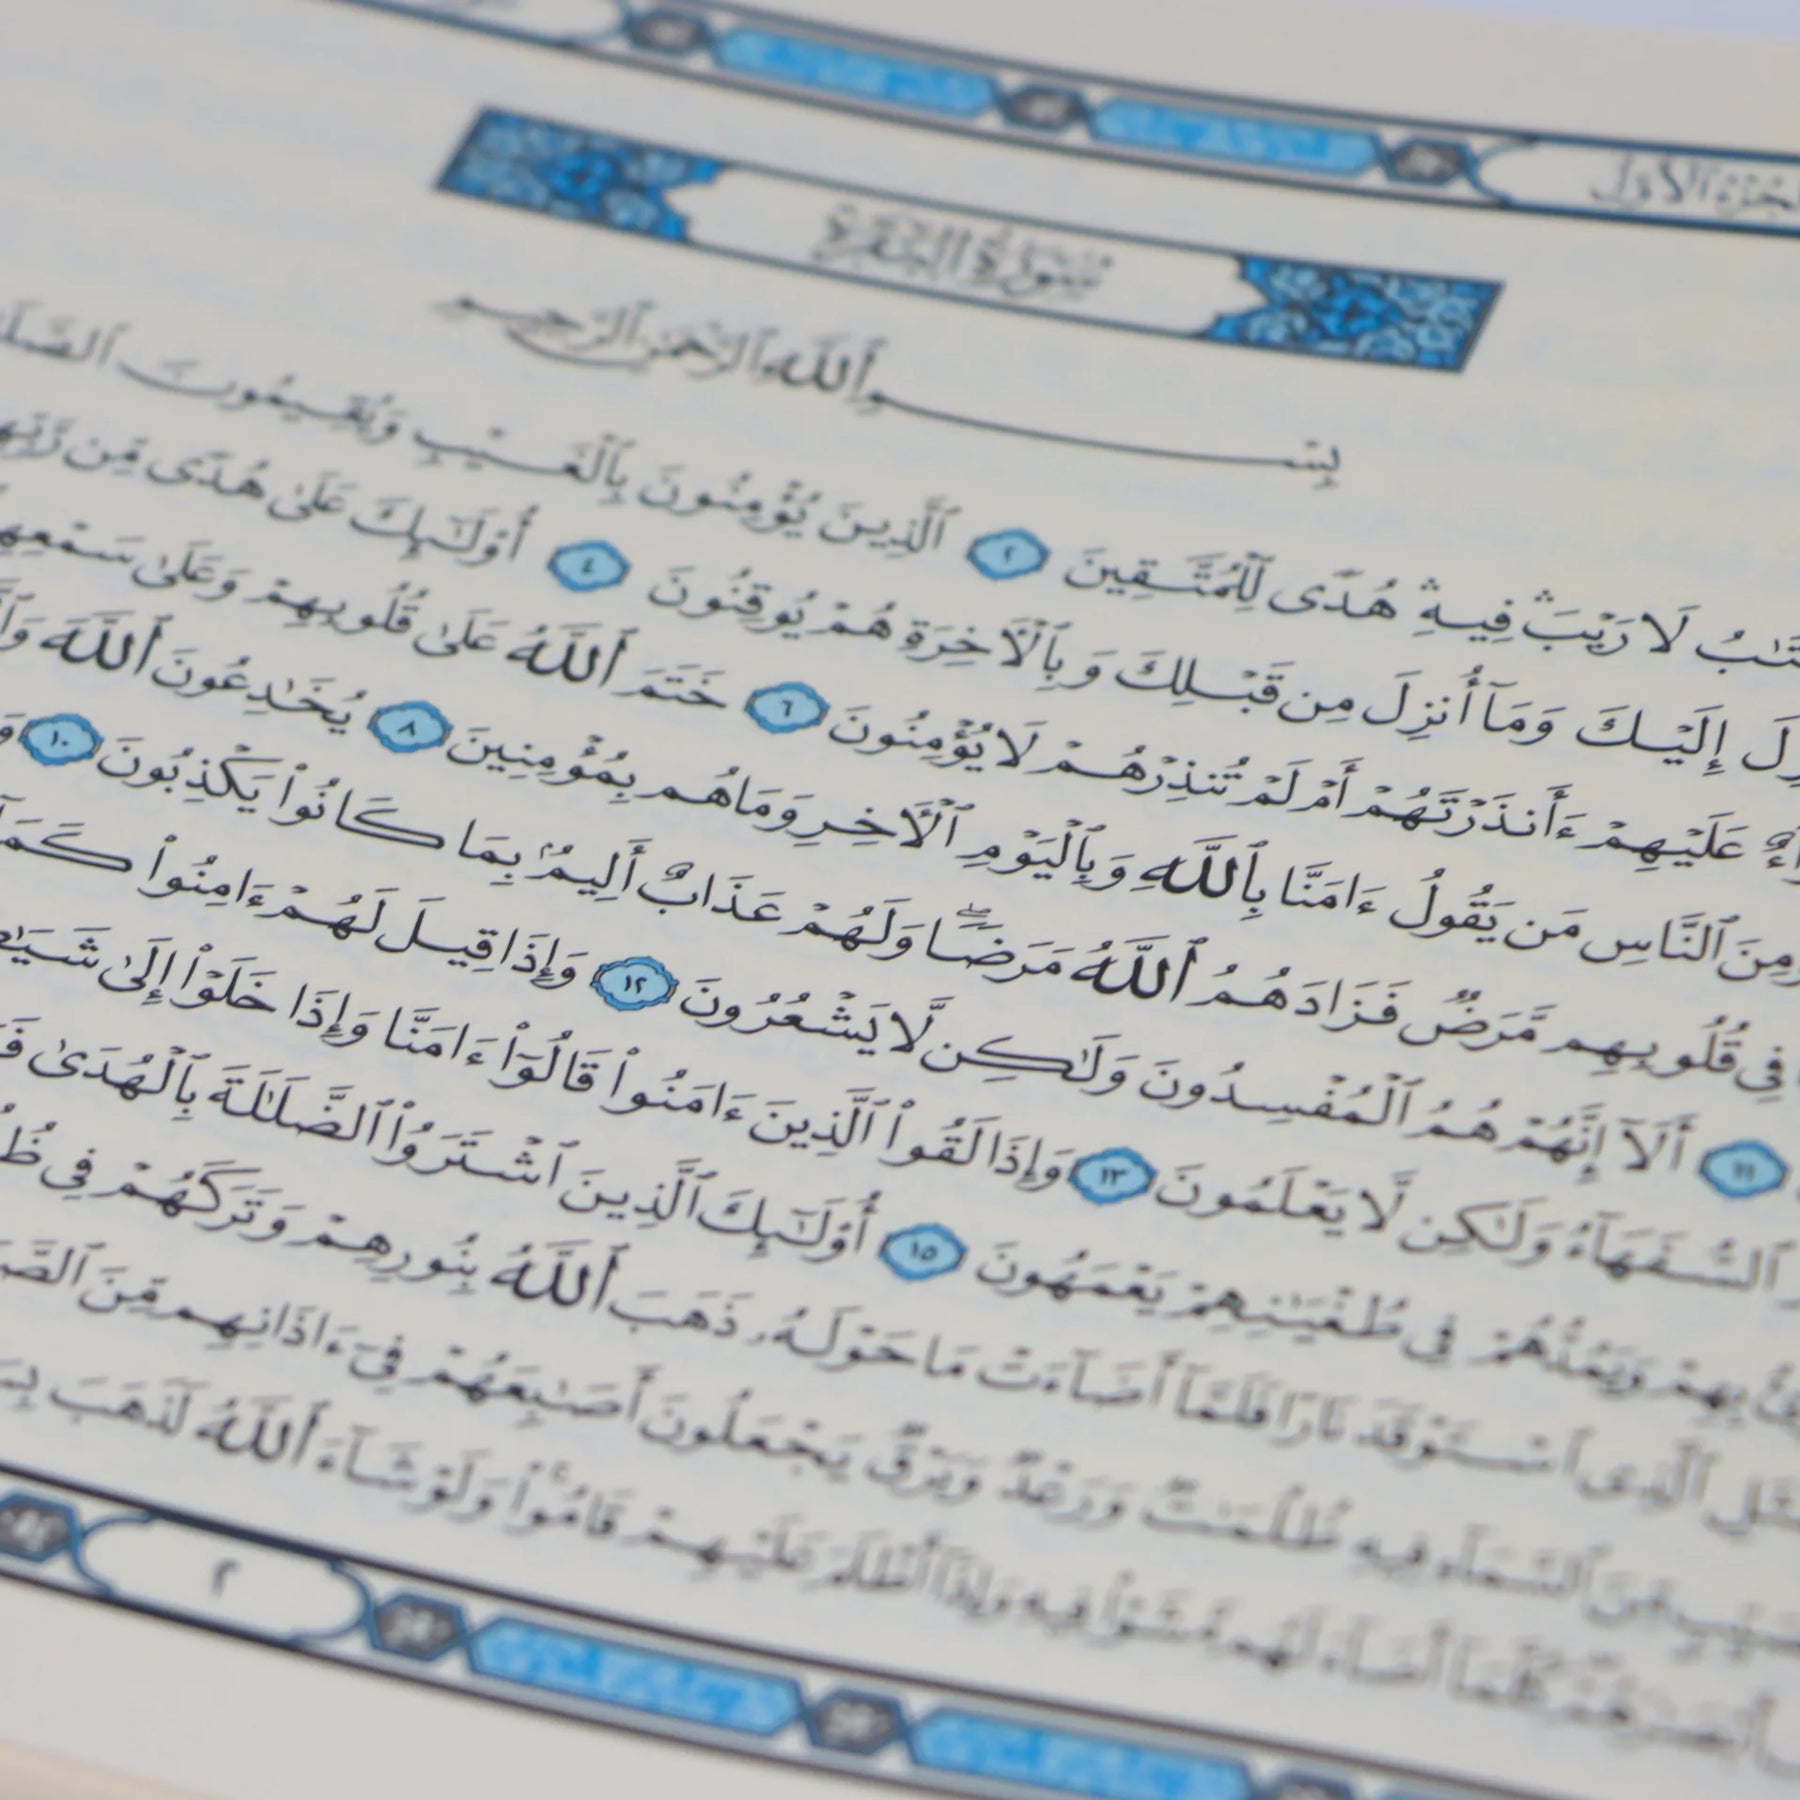 الجزء الأول
سورة البقرة
بِسْمِ ٱللَّهِ ٱلرَّحْمَٰنِ ٱلرَّحِيمِ
لَا رَيْبَ ۛ فِيهِ ۛ هُدًى لِّلْمُتَّقِينَ ٢ ٱلَّذِينَ يُؤْمِنُونَ بِٱلْغَيْبِ وَيُقِيمُونَ
إِلَيْكَ وَمَآ أُنزِلَ مِن قَبْلِكَ وَبِٱلْءَاخِرَةِ هُمْ يُوقِنُونَ ٤ أُو۟لَٰٓئِكَ عَلَىٰ هُدًى مِّن
عَلَيْهِمْ ءَأَنذَرْتَهُمْ أَمْ لَمْ تُنذِرْهُمْ لَا يُؤْمِنُونَ ٦ خَتَمَ ٱللَّهُ عَلَىٰ قُلُوبِهِمْ وَعَلَىٰ
وَمِنَ ٱلنَّاسِ مَن يَقُولُ ءَامَنَّا بِٱللَّهِ وَبِٱلْيَوْمِ ٱلْءَاخِرِ وَمَا هُم بِمُؤْمِنِينَ ٨ يُخَٰدِعُونَ ٱللَّهَ
فِى قُلُوبِهِم مَّرَضٌ فَزَادَهُمُ ٱللَّهُ مَرَضًا ۖ وَلَهُمْ عَذَابٌ أَلِيمٌۢ بِمَا كَانُوا۟ يَكْذِبُونَ ١٠
١١ أَلَآ إِنَّهُمْ هُمُ ٱلْمُفْسِدُونَ وَلَٰكِن لَّا يَشْعُرُونَ ١٢ وَإِذَا قِيلَ لَهُمْ ءَامِنُوا۟
ٱلسُّفَهَآءُ وَلَٰكِن لَّا يَعْلَمُونَ ١٣ وَإِذَا لَقُوا۟ ٱلَّذِينَ ءَامَنُوا۟ قَالُوٓا۟ ءَامَنَّا وَإِذَا خَلَوْا۟ إِلَىٰ
بِهِمْ وَيَمُدُّهُمْ فِى طُغْيَٰنِهِمْ يَعْمَهُونَ ١٥ أُو۟لَٰٓئِكَ ٱلَّذِينَ ٱشْتَرَوُا۟ ٱلضَّلَٰلَةَ بِٱلْهُدَىٰ
ٱلَّذِى ٱسْتَوْقَدَ نَارًا فَلَمَّآ أَضَآءَتْ مَا حَوْلَهُۥ ذَهَبَ ٱللَّهُ بِنُورِهِمْ وَتَرَكَهُمْ فِى
مِّنَ ٱلسَّمَآءِ فِيهِ ظُلُمَٰتٌ وَرَعْدٌ وَبَرْقٌ يَجْعَلُونَ أَصَٰبِعَهُمْ فِىٓ ءَاذَانِهِم مِّنَ
كُلَّمَآ أَضَآءَ لَهُم مَّشَوْا۟ فِيهِ وَإِذَآ أَظْلَمَ عَلَيْهِمْ قَامُوا۟ ۚ وَلَوْ شَآءَ ٱللَّهُ لَذَهَبَ
٢